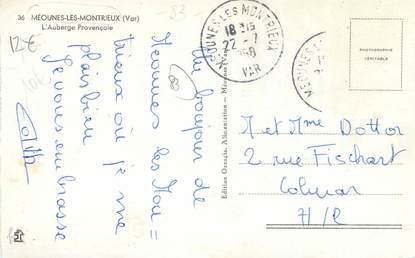 36 MÉOUNES-LES-MONTRIEUX (Var)
L'Auberge Provençale
12€
Un bonjour de
Méounes les Mon=
trieux où je me
plais bien
Je vous embrasse
Edith
MEOUNES-LES-MONTRIEUX
18H15
22-7
VAR
Edition Orengia, Alimentation - Méounes (Var)
PHOTOGRAPHIE
VÉRITABLE
M et Mme Dottor
2 rue Fischart
Colmar
H/R